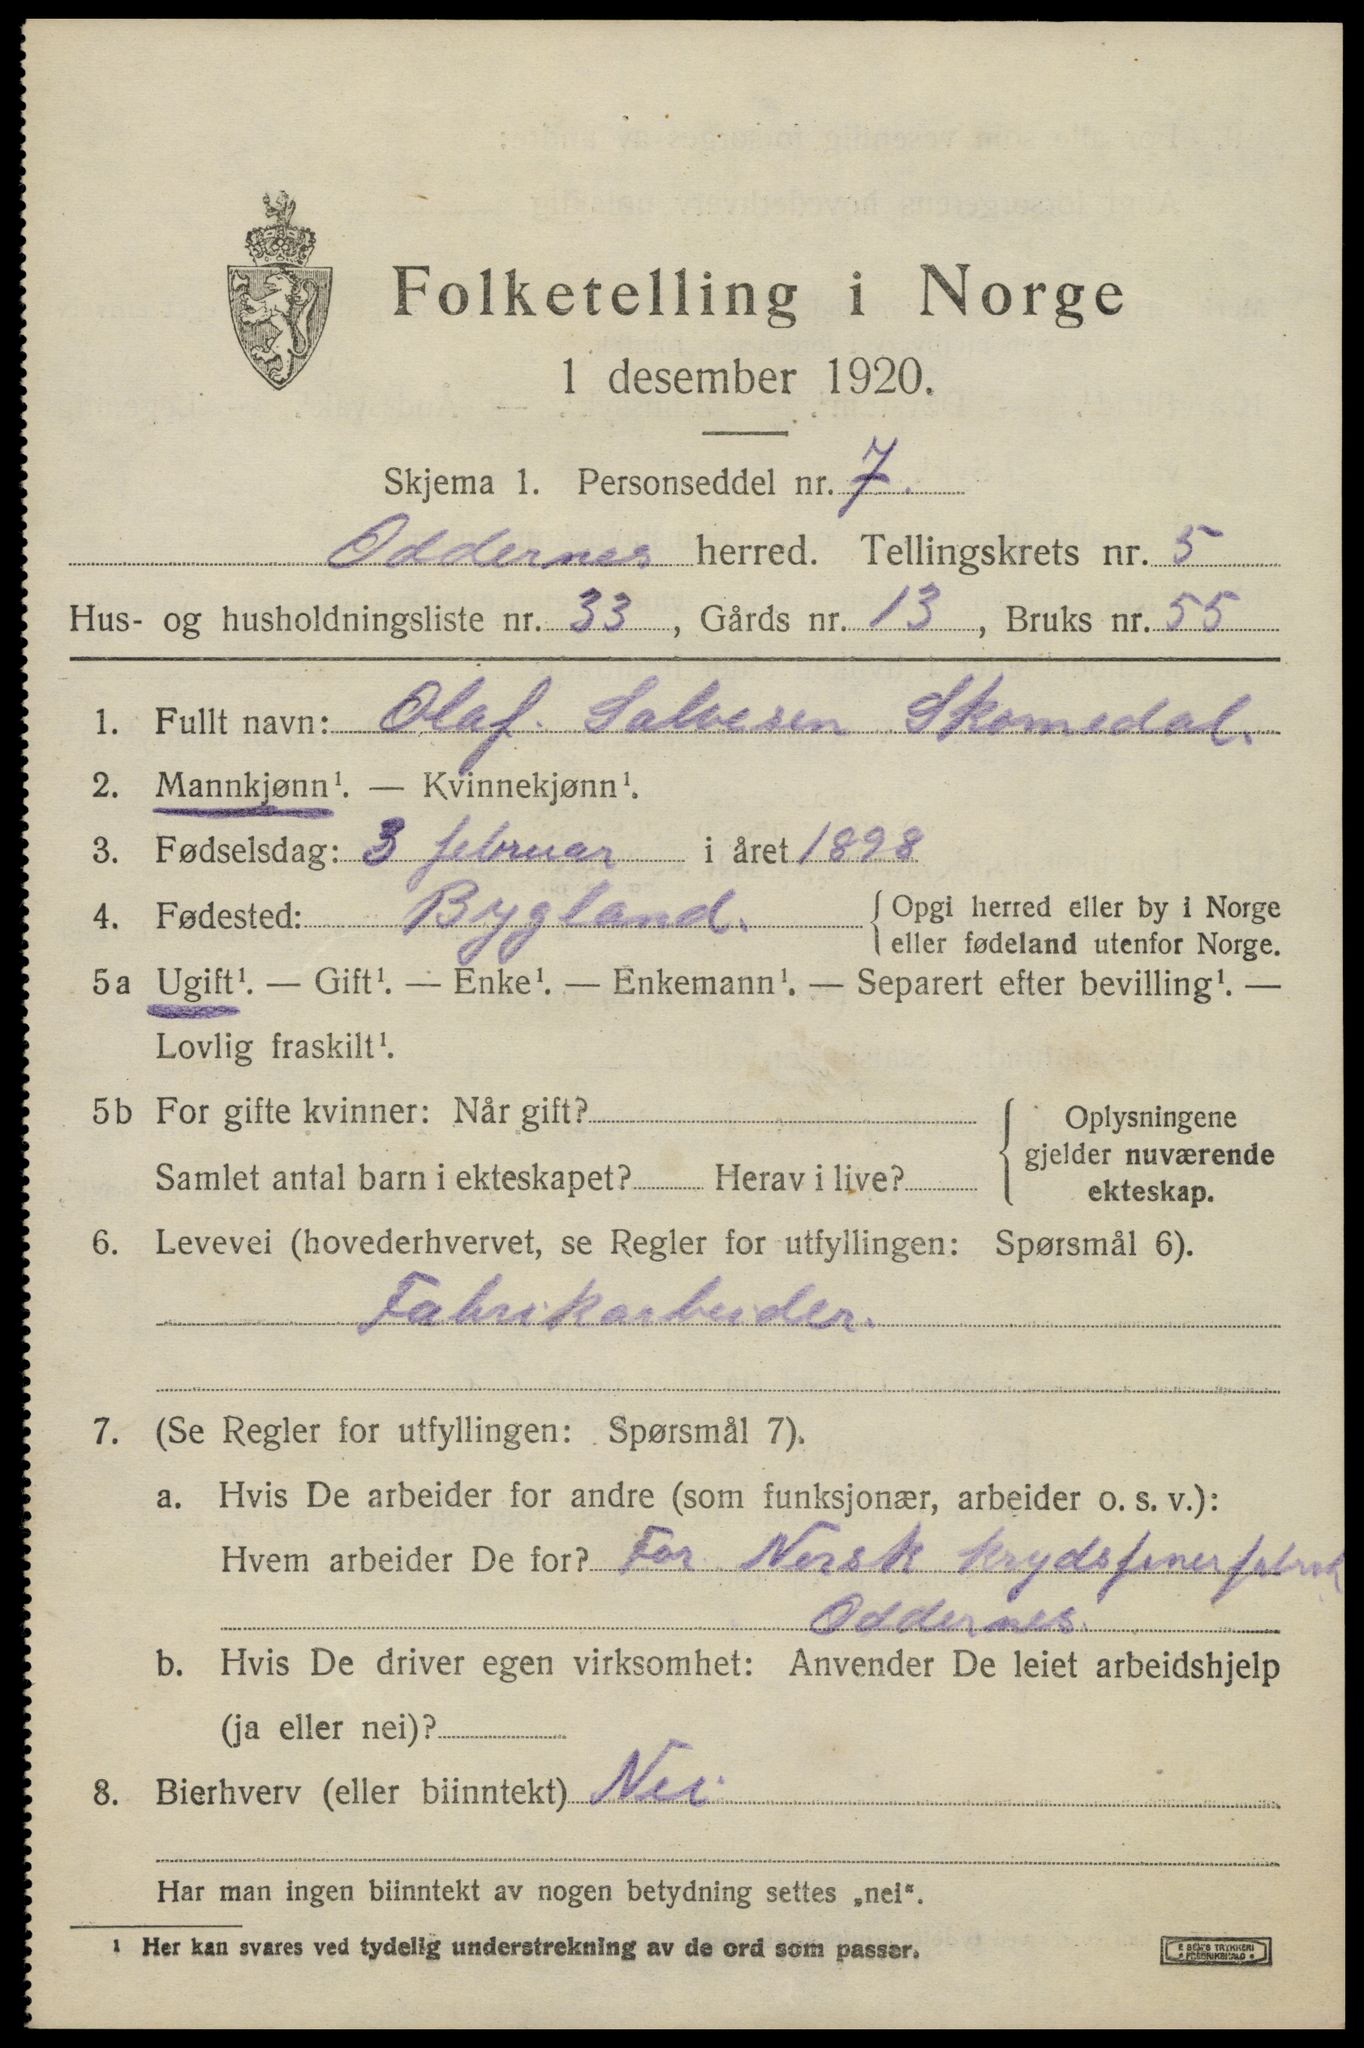 Folketelling i Norge
1 desember 1920.
Skjema 1. Personseddel nr. 7.
Oddernes herred. Tellingskrets nr. 5
Hus- og husholdningsliste nr. 33, Gårds nr. 13, Bruks nr. 55
1. Fullt navn: Olaf Salvesen Skomedal.
2. Mannkjønn¹. — Kvinnekjønn¹.
3. Fødselsdag: 3 februar i året 1898
4. Fødested: Bygland. { Opgi herred eller by i Norge
eller fødeland utenfor Norge.
5a Ugift¹. — Gift¹. — Enke¹. — Enkemann¹. — Separert efter bevilling¹. —
Lovlig fraskilt¹.
5b For gifte kvinner: Når gift?
Samlet antal barn i ekteskapet? Herav i live?
Oplysningene
gjelder nuværende
ekteskap.
6. Levevei (hovederhvervet, se Regler for utfyllingen: Spørsmål 6).
Fabrikarbeider.
7. (Se Regler for utfyllingen: Spørsmål 7).
a. Hvis De arbeider for andre (som funksjonær, arbeider o. s. v.):
Hvem arbeider De for? For Norsk krydsfinerfabrik
Oddernes.
b. Hvis De driver egen virksomhet: Anvender De leiet arbeidshjelp
(ja eller nei)?
8. Bierhverv (eller biinntekt) Nei
Har man ingen biinntekt av nogen betydning settes „nei“.
¹ Her kan svares ved tydelig understrekning av de ord som passer.
E SEM'S TRYKKERI
FREDRIKSHALD